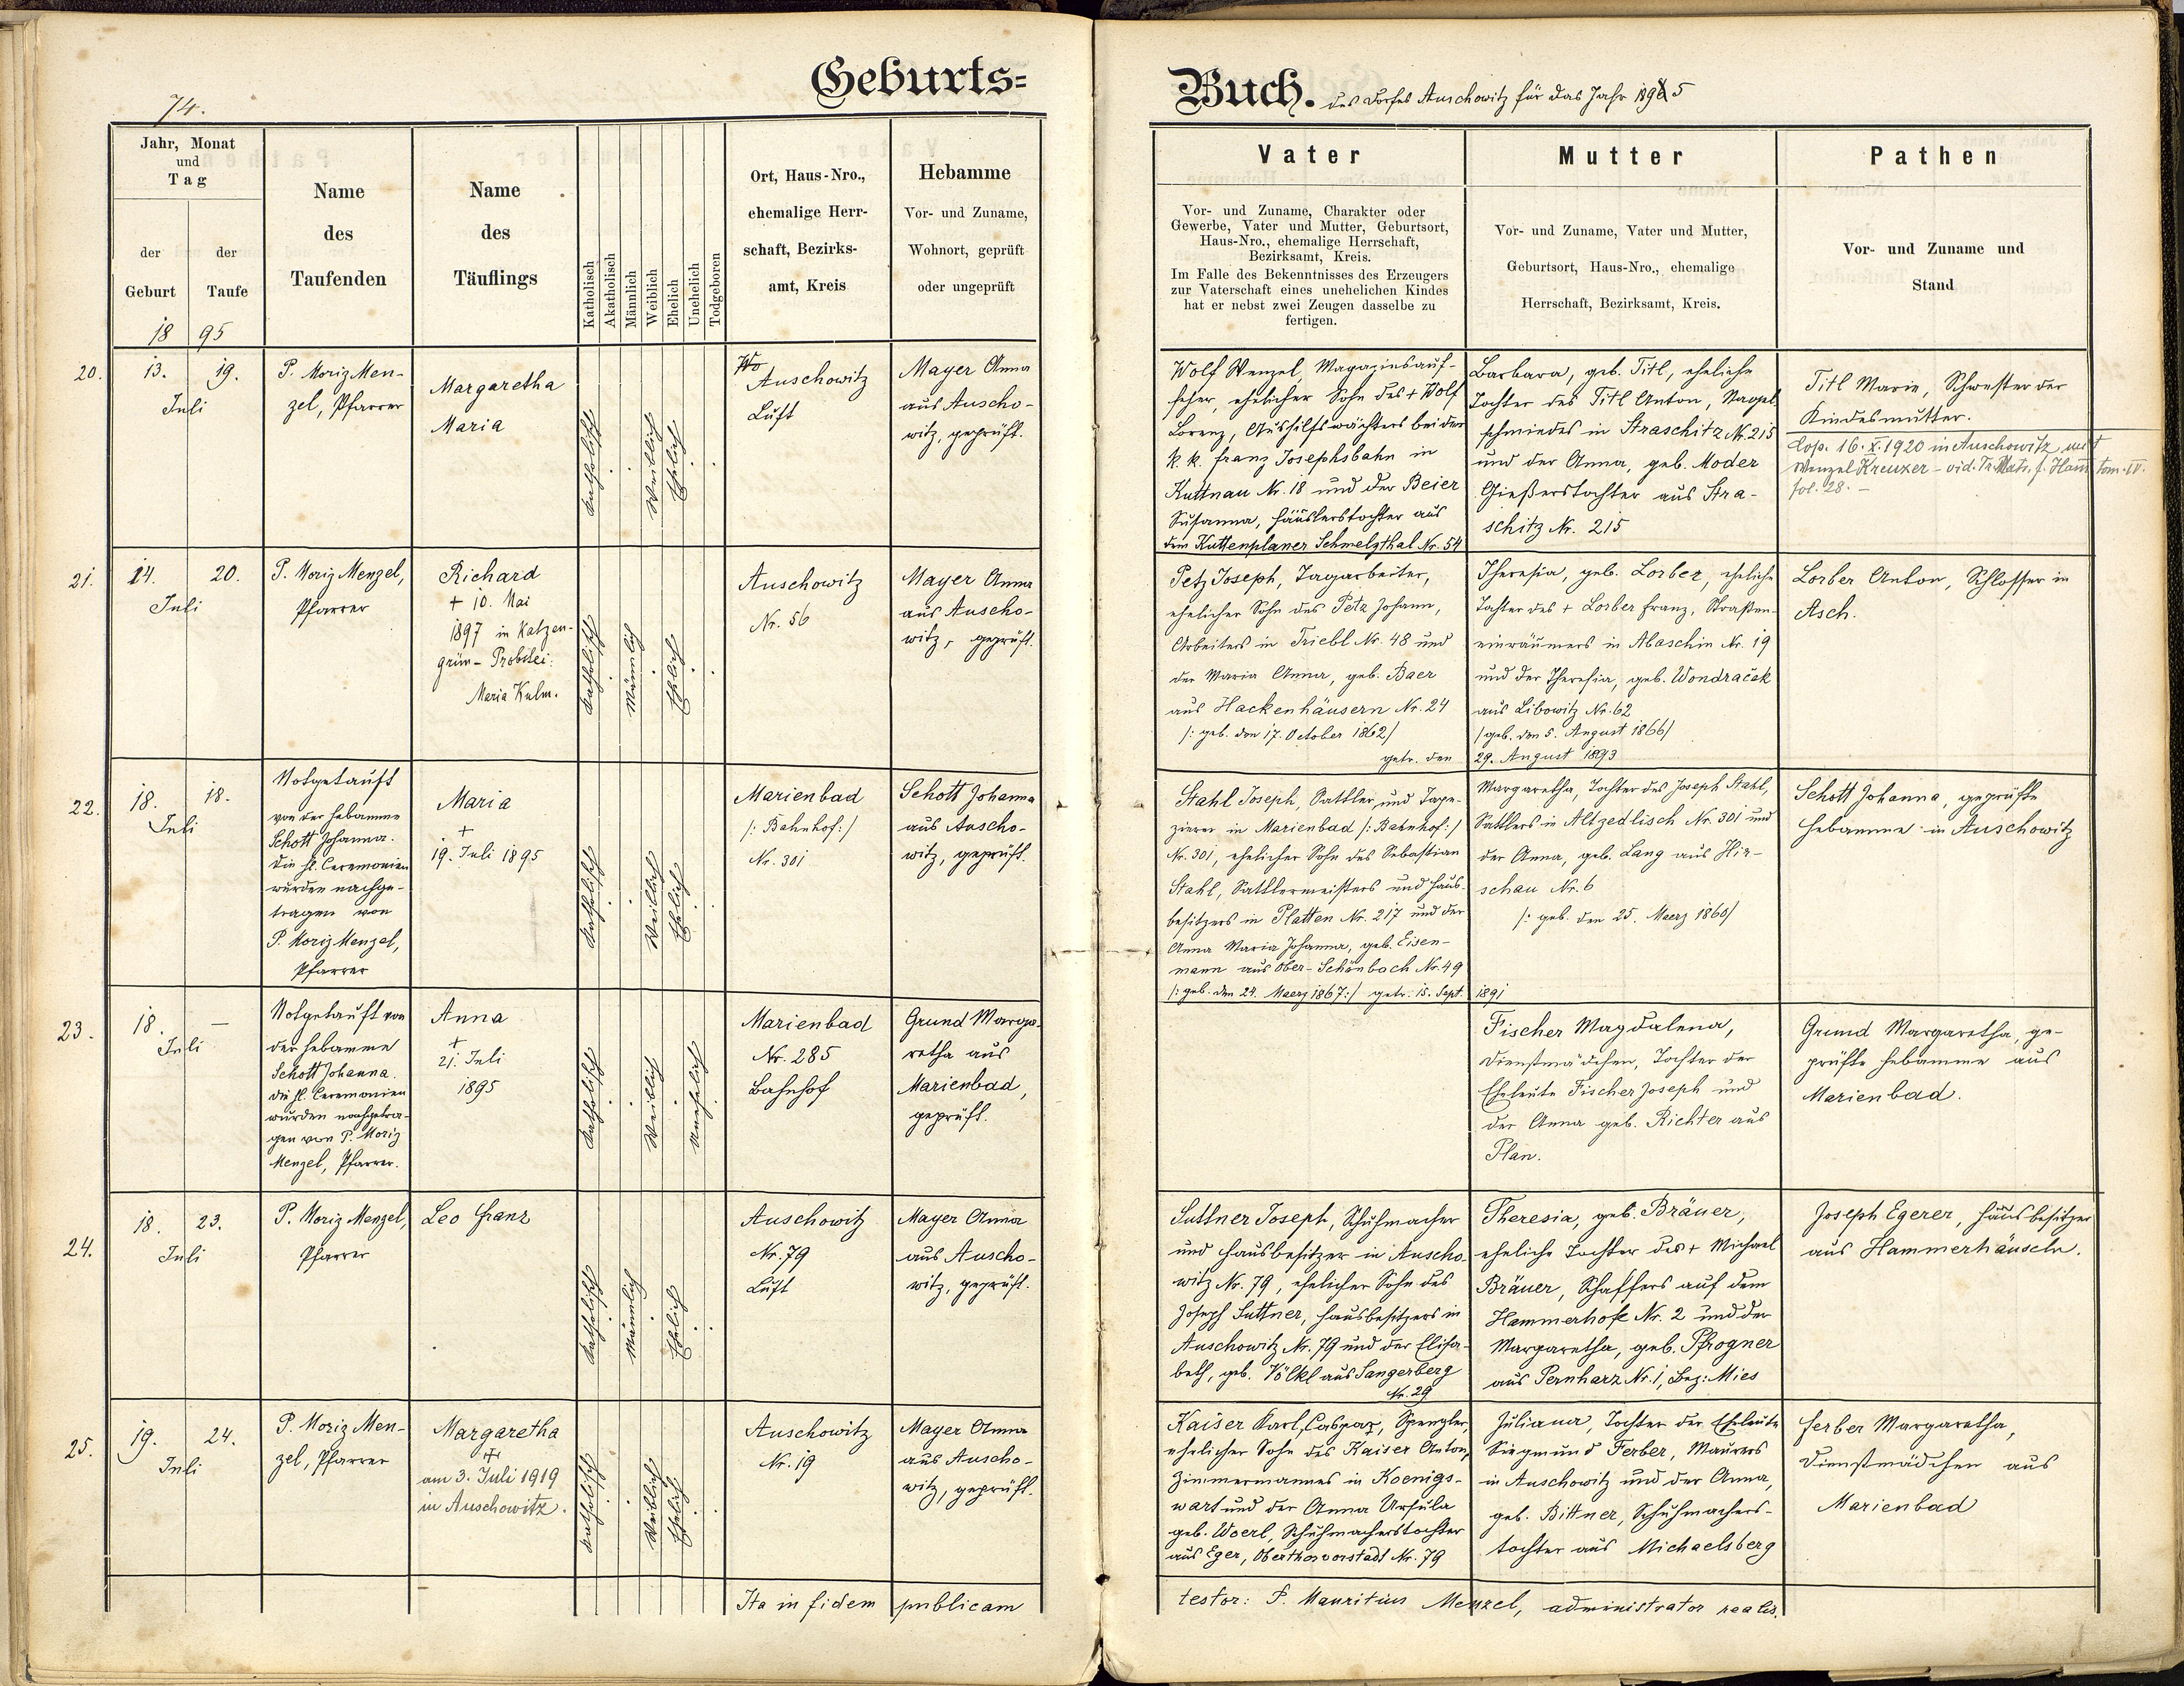 74.
Geburts=
Jahr, Monat
und
Tag
der
Geburt
der
Taufe
18 95
Name
des
Taufenden
Name
des
Täuflings
Katholisch
Akatholisch
Männlich
Weiblich
Ehelich
Unehelich
Todgeboren
Ort, Haus-Nro.,
ehemalige Herr-
schaft, Bezirks-
amt, Kreis
Hebamme
Vor- und Zuname,
Wohnort, geprüft
oder ungeprüft
20.
13.
19.
Juli
P. Moriz Men-
zel, Pfarrer
Margaretha
Maria
Katholisch
Weiblich
Ehelich
Auschowitz
Luft
Mayer Anna
aus Auscho-
witz, geprüft.
21.
14.
20.
Juli
P. Moriz Menzel,
Pfarrer
Richard
+ 10. Mai
1897 in Katzen-
grün - Probstei:
Maria Kulm.
Katholisch
Männlich
Ehelich
Auschowitz
Nr. 56
Mayer Anna
aus Auscho-
witz, geprüft.
22.
18.
18.
Juli
Notgetauft
von der Hebamme
Schott Johanna.
Die hl. Ceremonien
wurden nachge-
tragen von
P. Moriz Menzel,
Pfarrer
Maria
+
19. Juli 1895
Katholisch
Weiblich
Ehelich
Marienbad
/: Bahnhof :/
Nr. 301
Schott Johanna
aus Auscho-
witz, geprüft.
23.
18.
—
Juli
Notgetauft von
der Hebamme
Schott Johanna.
Die hl. Ceremonien
wurden nachgetra-
gen von P. Moriz
Menzel, Pfarrer.
Anna
+
21. Juli
1895
Katholisch
Weiblich
Unehelich
Marienbad
Nr. 285
Bahnhof
Grund Marga-
retha aus
Marienbad,
geprüft.
24.
18.
23.
Juli
P. Moriz Menzel,
Pfarrer
Leo Franz
Katholisch
Männlich
Ehelich
Auschowitz
Nr. 79
Luft
Mayer Anna
aus Auscho-
witz, geprüft.
25.
19.
24.
Juli
P. Moriz Men-
zel, Pfarrer
Margaretha
+
am 3. Juli 1919
in Auschowitz.
Katholisch
Weiblich
Ehelich
Auschowitz
Nr. 19
Mayer Anna
aus Auscho-
witz, geprüft.
Ita in fidem publicam
Buch. des Dorfes Auschowitz für das Jahr 1895
Vater
Vor- und Zuname, Charakter oder
Gewerbe, Vater und Mutter, Geburtsort,
Haus-Nro., ehemalige Herrschaft,
Bezirksamt, Kreis.
Im Falle des Bekenntnisses des Erzeugers
zur Vaterschaft eines unehelichen Kindes
hat er nebst zwei Zeugen dasselbe zu
fertigen.
Mutter
Vor- und Zuname, Vater und Mutter,
Geburtsort, Haus-Nro., ehemalige
Herrschaft, Bezirksamt, Kreis.
Pathen
Vor- und Zuname und
Stand
Wolf Wenzel, Magazinsauf-
seher, ehelicher Sohn des + Wolf
Lorenz, Aushilfswächters bei der
k. k. Franz Josephsbahn in
Kuttnau Nr. 18 und der Beier
Susanna, Häuslerstochter aus
dem Kuttenplaner Schmelzthal Nr. 54
Barbara, geb. Titl, eheliche
Tochter des Titl Anton, Nagel-
schmiedes in Straschitz Nr. 215
und der Anna, geb. Moder
Gießerstochter aus Stra-
schitz Nr. 215
Titl Marie, Schwester der
Kindesmutter.
Cop. 16. X. 1920 in Auschowitz mit
Wenzel Kreuzer - vid. Tr. Matr. f. Ham tom. IV.
fol. 28. -
Petz Joseph, Tagarbeiter,
ehelicher Sohn des Petz Johann,
Arbeiters in Triebl Nr. 48 und
der Maria Anna, geb. Baer
aus Hackenhäusern Nr. 24
/: geb. den 17. October 1862/
getr. den
Theresia, geb. Lorber, eheliche
Tochter des + Lorber Franz, Straßen-
einräumers in Abaschin Nr. 19
und der Theresia, geb. Wondraček
aus Libowitz Nr. 62
/geb. den 5. August 1866/
29. August 1893
Lorber Anton, Schlosser in
Asch.
Stahl Joseph, Sattler und Tape-
zierer in Marienbad /: Bahnhof :/
Nr. 301, ehelicher Sohn des Sebastian
Stahl, Sattlermeisters und Haus-
besitzers in Platten Nr. 217 und der
Anna Maria Johanna, geb. Eisen-
mann aus Ober-Schönbach Nr. 49
/: geb. den 24. Maerz 1867 :/ getr. 15. Sept. 1891
Margaretha, Tochter des Joseph Stahl,
Sattlers in Altzedlisch Nr. 301 und
der Anna, geb. Lang aus Hir-
schau Nr. 6
/: geb. den 25. Maerz 1860/
Schott Johanna, geprüfte
Hebamme in Auschowitz
Fischer Magdalena,
Dienstmädchen, Tochter der
Eheleute Fischer Joseph und
der Anna geb. Richter aus
Plan.
Grund Margaretha, ge-
prüfte Hebamme aus
Marienbad.
Suttner Joseph, Schuhmacher
und Hausbesitzer in Auscho-
witz Nr. 79, ehelicher Sohn des
Joseph Suttner, Hausbesitzers in
Auschowitz Nr. 79 und der Elisa-
beth, geb. Völkl aus Sangerberg
Nr. 29
Theresia, geb. Bräuer,
eheliche Tochter des + Michael
Bräuer, Schaffers auf dem
Hammerhofe Nr. 2 und der
Margaretha, geb. Pfrogner
aus Pernharz Nr. 1, Bez: Mies
Joseph Egerer, Hausbesitzer
aus Hammerhäuseln.
Kaiser Karl, Caspar, Spengler,
ehelicher Sohn des Kaiser Anton,
Zimmermannes in Koenigs-
wart und der Anna Ursula
geb. Woerl, Schuhmacherstochter
aus Eger, Oberthorvorstadt Nr. 79
Juliana, Tochter der Eheleute
Siegmund Ferber, Maurers
in Auschowitz und der Anna,
geb. Bittner, Schuhmachers-
tochter aus Michaelsberg
Ferber Margaretha,
Dienstmädchen aus
Marienbad
testor: P. Mauritius Menzel, administrator realis.